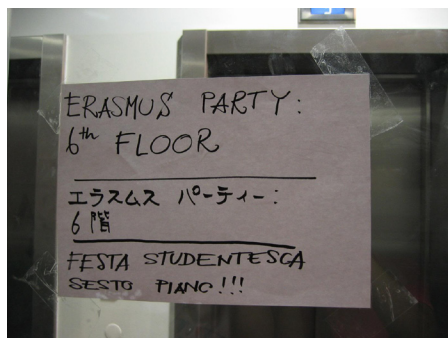 ERASMUS PARTY:
6th FLOOR
エラスムス パーティー:
6階
FESTA STUDENTESCA
SESTO PIANO!!!